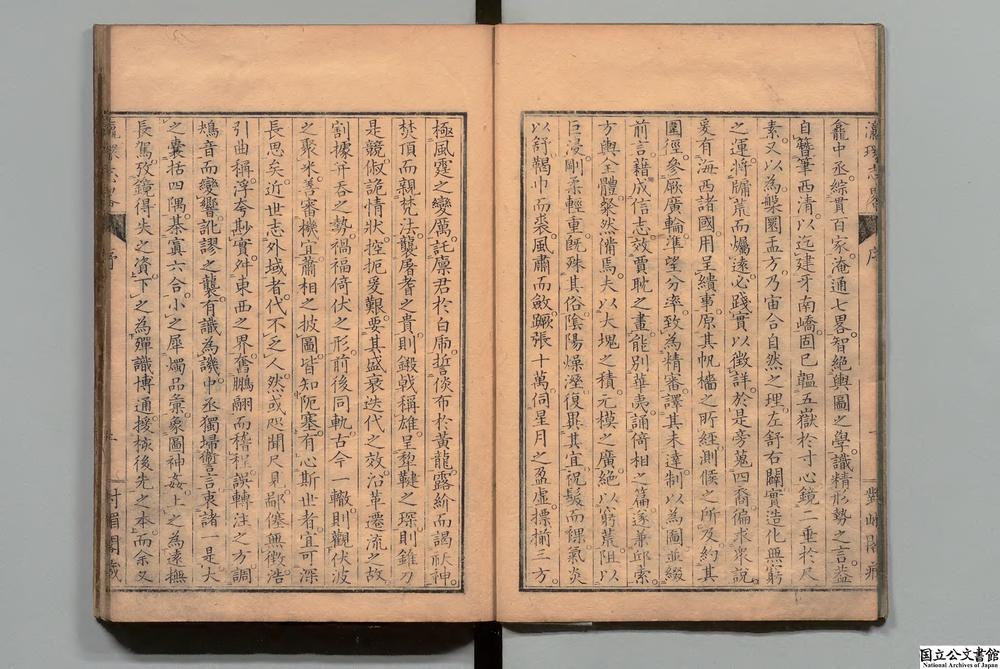 龕中丞綜貫百家淹通七畧智絶輿圖之學識精形勢之言葢
自簪筆西清以迄建牙南嶠固已韞五嶽於寸心鏡二垂於尺
素又以為槃圜盂方乃宙合自然之理左舒右闢實造化無窮
之運將牖荒而矚遠必踐實以徴詳於是旁蒐四裔徧求衆説
爰有海西諸國用呈繢事原其帆檣之所經測候之所及約其
圍徑參厥廣輪準望分率致為精審譯其未達制以為圖並綴
前言藉成信志效賈耽之畫能別華夷誦倚相之篇遂兼邱索
方輿全體粲然備焉夫以大塊之積元模之廣絶以窮荒阻以
巨浸剛柔輕重既殊其俗陰陽燥溼復異其宜祝髮而倮氣炎
以舒鞨巾而裘風肅而斂蹶張十萬伺星月之盈虛摽揃三方
極風霆之變厲託廪君於白虎誓倓布於黄龍露紒而謁祆神
焚頂而親梵法襲屠耆之貴則鍛戟稱雄呈犂鞬之琛則錐刀
是競俶詭情狀控扼爰艱要其盛衰迭代之效沿革遷流之故
割據并吞之勢禍福倚伏之形前後同軌古今一轍則觀伏波
之聚米善審機宜蕭相之披圖皆知阨塞有心斯世者宜可深
長思矣近世志外域者代不乏人然或咫聞尺見鄙塞無徴浩
引曲稱浮夸尠實舛東西之界奮鵬翩而稽程誤轉注之方調
鴂音而變響訛謬之襲有識為譏中丞獨埽讆言衷諸一是大
之囊括四隅綦寘六合小之犀燭品彙象圖神姦上之為遠撫
長駕攷鏡得失之資下之為殫識博通援核後先之本而余又
瀛環志畧
序
對嵋閣藏